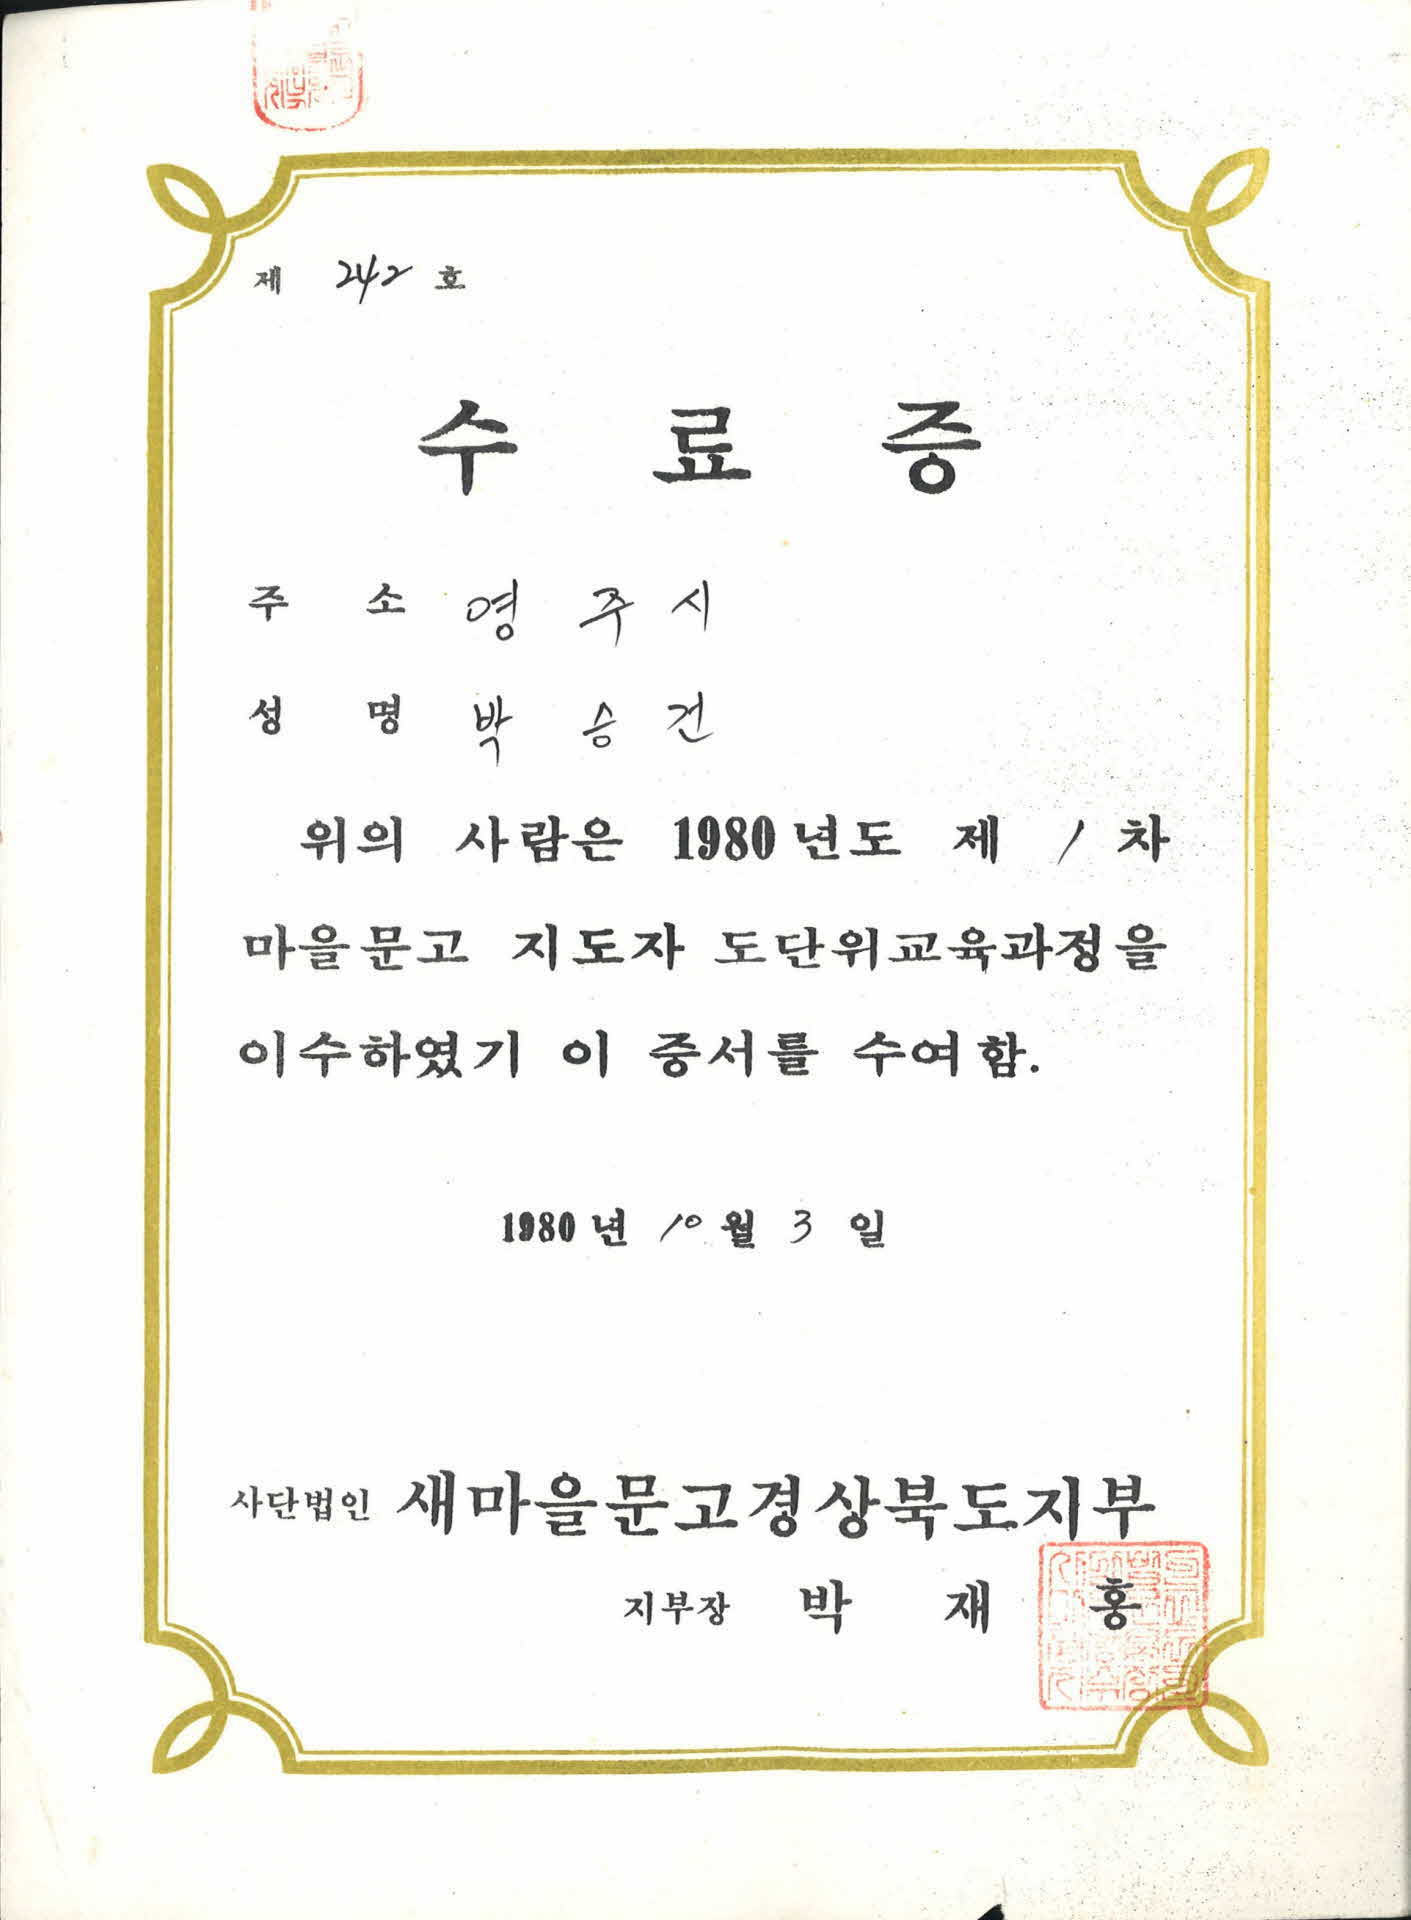 제 242 호
수 료 증
주 소 영 주 시
성 명 박 승 건
위의 사람은 1980년도 제 1 차
마을문고 지도자 도단위교육과정을
이수하였기 이 증서를 수여함.
1980년 10월 3 일
사단법인 새마을문고경상북도지부
지부장 박 재 홍